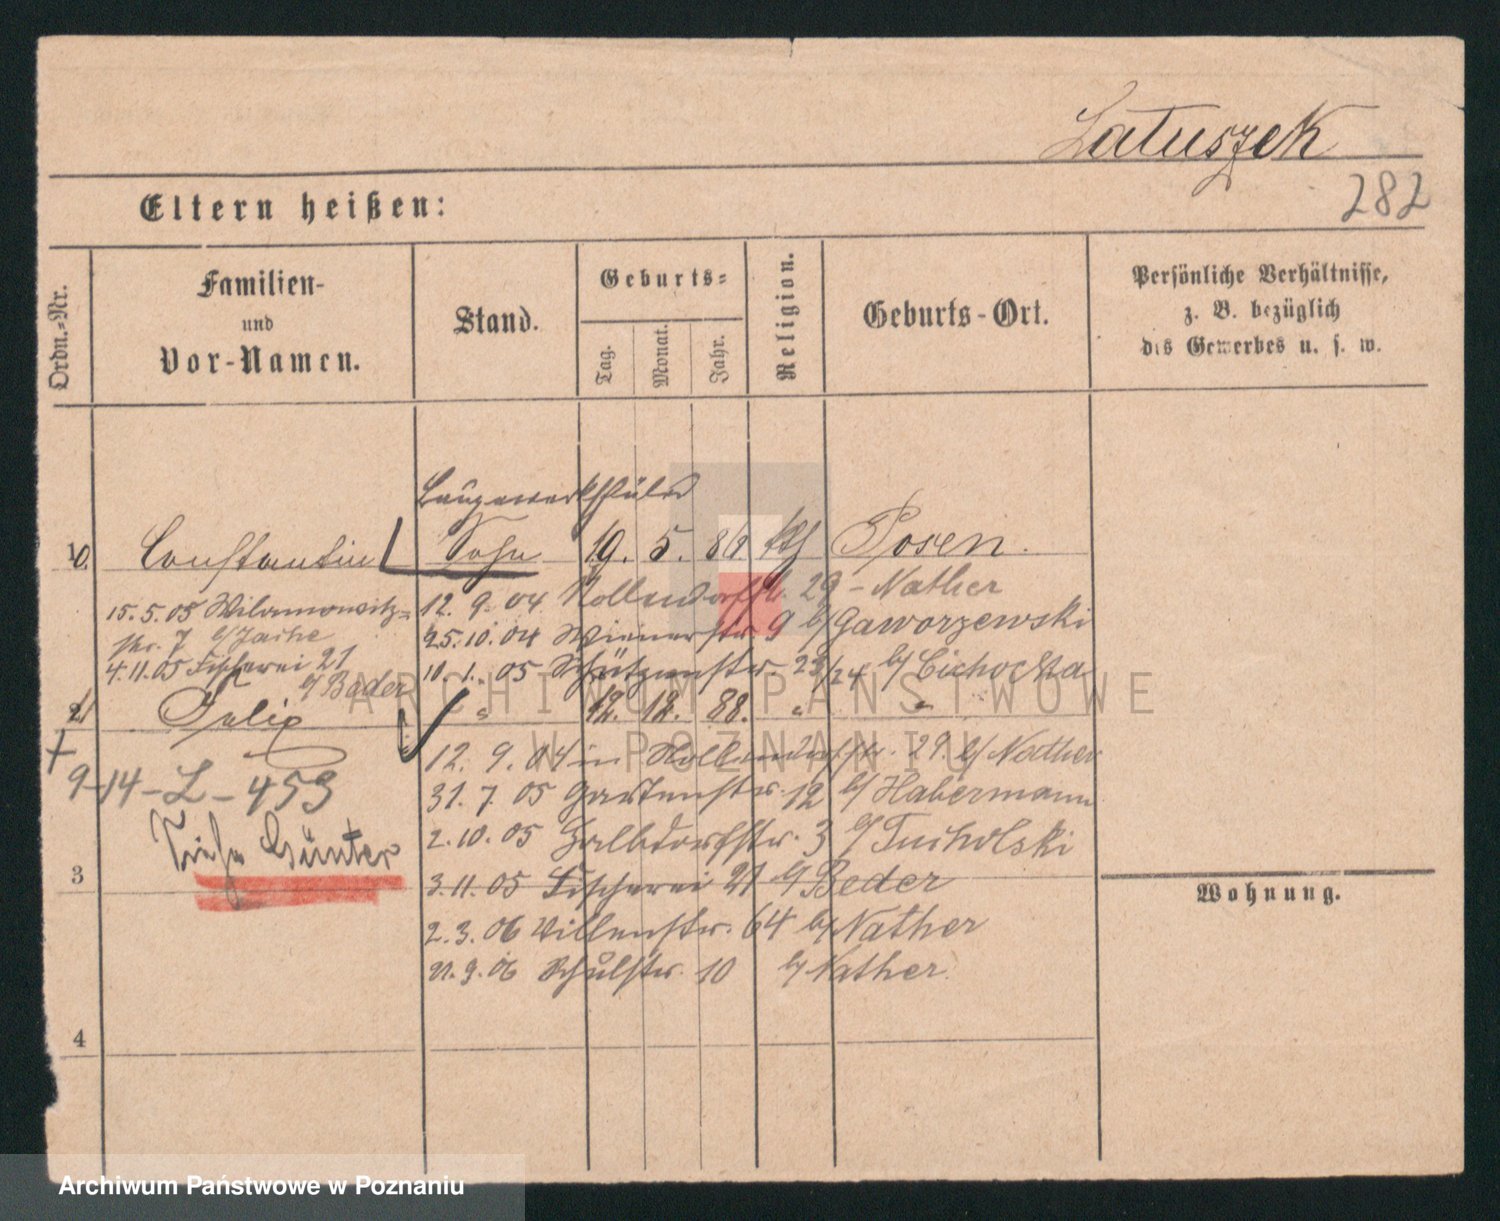 Latuszek
282
Eltern heißen:
Ordn.-Nr.
Familien-
und
Vor-Namen.
Stand.
Geburts-
Tag.
Monat.
Jahr.
Religion.
Geburts-Ort.
Persönliche Verhältnisse,
z. B. bezüglich
des Gewerbes u. s. w.
Baugewerkschüler
10 Constantin Sohn 19. 5. 86 kth Posen.
15.5.05 Wilamowitz-
str. 7 b/ Jache
4.11.05 Fischerei 21
b/ Bader
12. 9. 04 Nollendorfstr. 29 - Nather
25.10.04 Wienerstr 9 b/ Gaworzewski
10. 1. 05 Schützenstr. 23/24 b/ Cichocka
2 Felix " 12. 12. 88. " "
12. 9. 04 in Nollendorfstr. 29 b/ Nather
31. 7. 05 Gartenstr. 12 b/ Habermann
2. 10. 05 Halbdorfstr. 3 b/ Tucholski
3. 11. 05 Fischerei 21 b/ Beder
2. 3. 06 Villenstr. 64 b/ Nather
21. 9. 06 Schulstr. 10 b/ Nather.
9-14-L-453
Siehe Günter
3
4
Wohnung.
ARCHIWUM PAŃSTWOWE
W POZNANIU
Archiwum Państwowe w Poznaniu